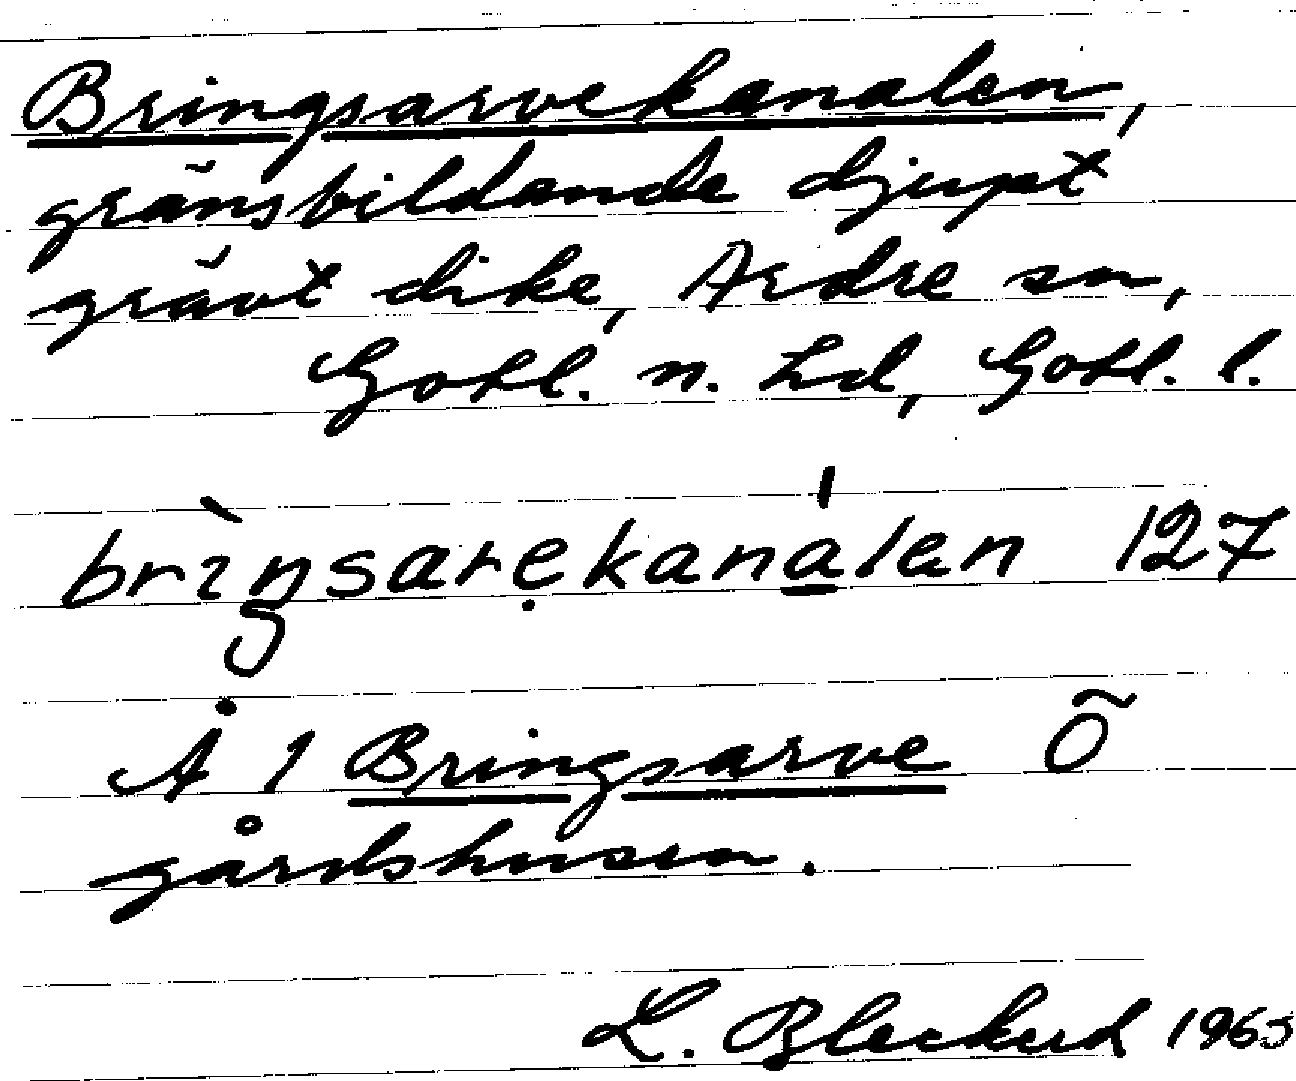 Bringsarvekanalen,
gränsbildande djupt
grävt dike, Ardre sn,
Gotl. n. hd, Gotl. l.
brìŋsarẹkanálen 127
Å 1 Bringsarve Ö
gårdshusen.
L. Bleckud 1963